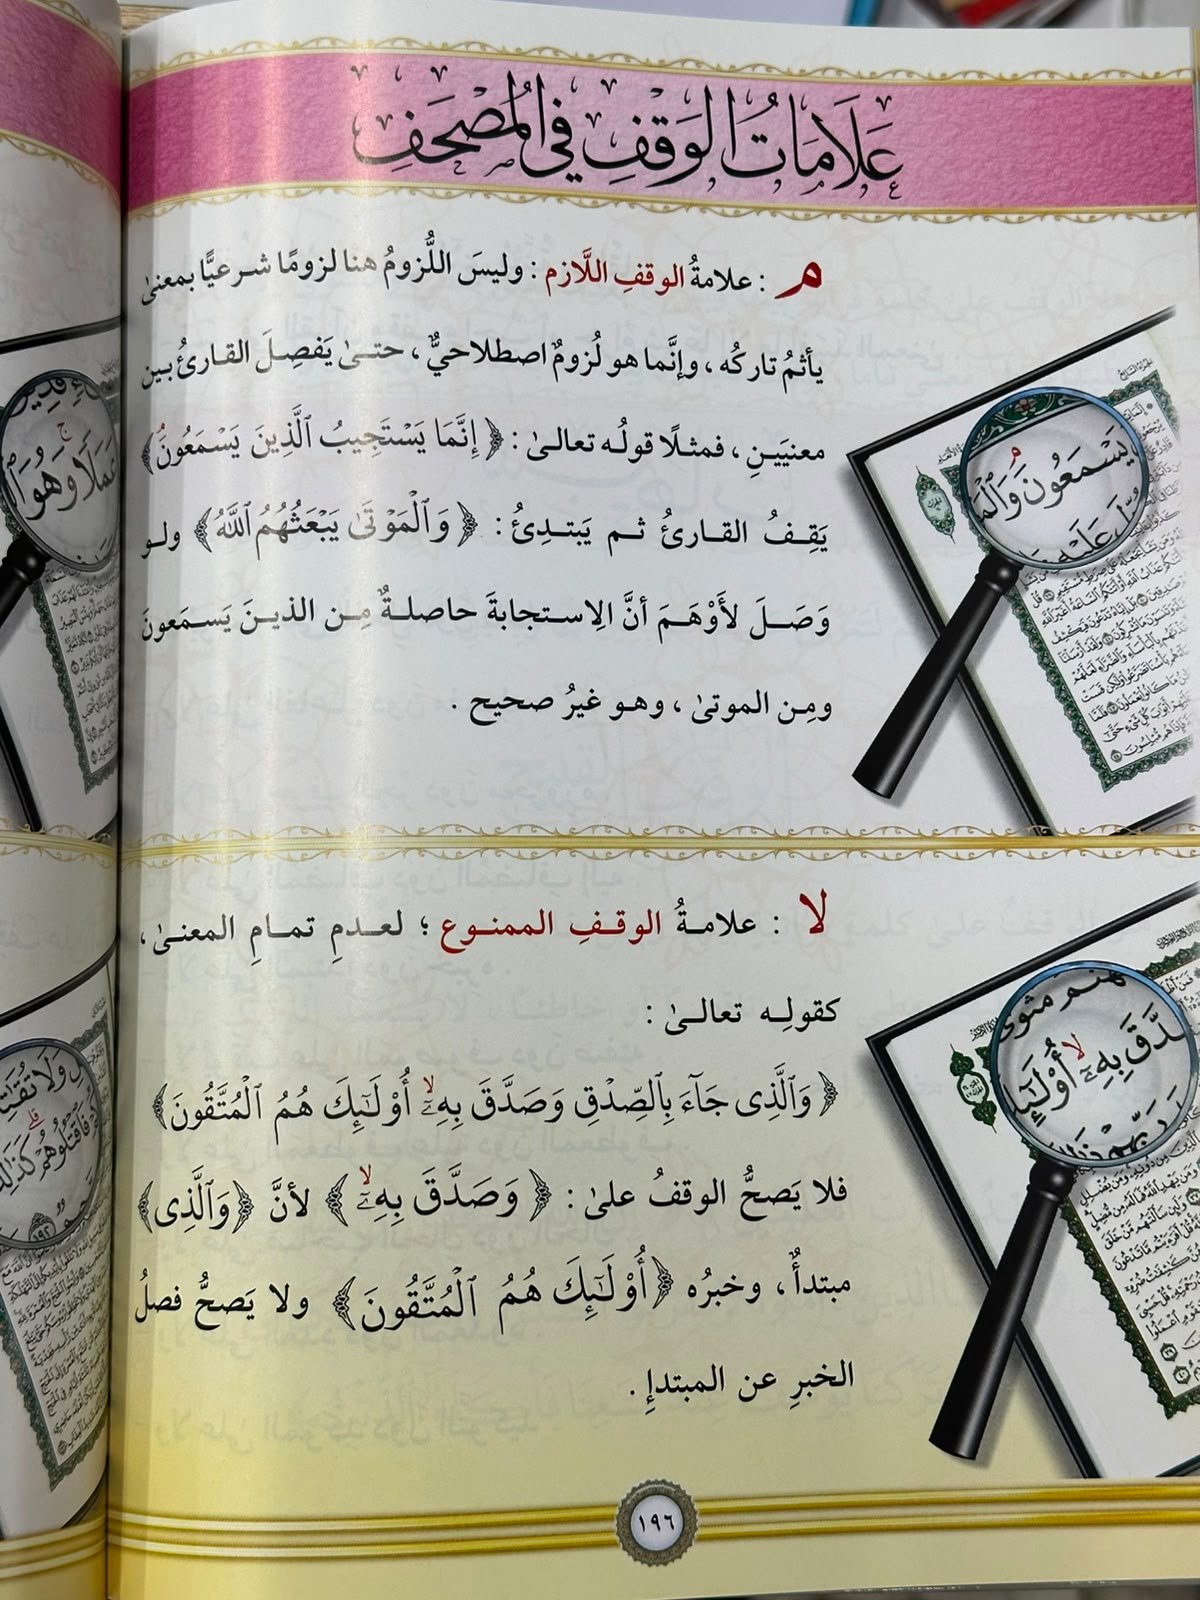 عَلَامَاتُ الوَقْفِ فِي المُصْحَفِ
م : علامةُ الوقفِ اللَّازم : وليسَ اللُّزومُ هنا لزومًا شرعيًّا بمعنىٰ
يأثمُ تاركُه ، وإنَّما هو لُزومٌ اصطلاحيٌّ ، حتىٰ يَفصِلَ القارئُ بين
معنيَينِ ، فمثلًا قولُه تعالىٰ : ﴿ إِنَّمَا يَسْتَجِيبُ ٱلَّذِينَ يَسْمَعُونَۘ ﴾
يَقِفُ القارئُ ثم يَبتدِئُ : ﴿ وَٱلْمَوْتَىٰ يَبْعَثُهُمُ ٱللَّهُ ﴾ ولو
وَصَلَ لأَوْهَمَ أنَّ الِاستجابةَ حاصلةٌ مِن الذينَ يَسمَعونَ
ومِن الموتىٰ ، وهو غيرُ صحيح .
يَسْمَعُونَۘ وَٱلْمَ
لا : علامةُ الوقفِ الممنوع ؛ لعدمِ تمامِ المعنىٰ ،
كقولِه تعالىٰ :
﴿ وَٱلَّذِى جَآءَ بِٱلصِّدْقِ وَصَدَّقَ بِهِۦٓۙ أُو۟لَـٰٓئِكَ هُمُ ٱلْمُتَّقُونَ ﴾
فلا يَصحُّ الوقفُ علىٰ : ﴿ وَصَدَّقَ بِهِۦٓۙ ﴾ لأنَّ ﴿ وَٱلَّذِى ﴾
مبتدأٌ ، وخبرُه ﴿ أُو۟لَـٰٓئِكَ هُمُ ٱلْمُتَّقُونَ ﴾ ولا يَصحُّ فصلُ
الخبرِ عن المبتدإِ .
دَّقَ بِهِۦٓۙ أُو۟لَـٰٓئِ
١٩٦